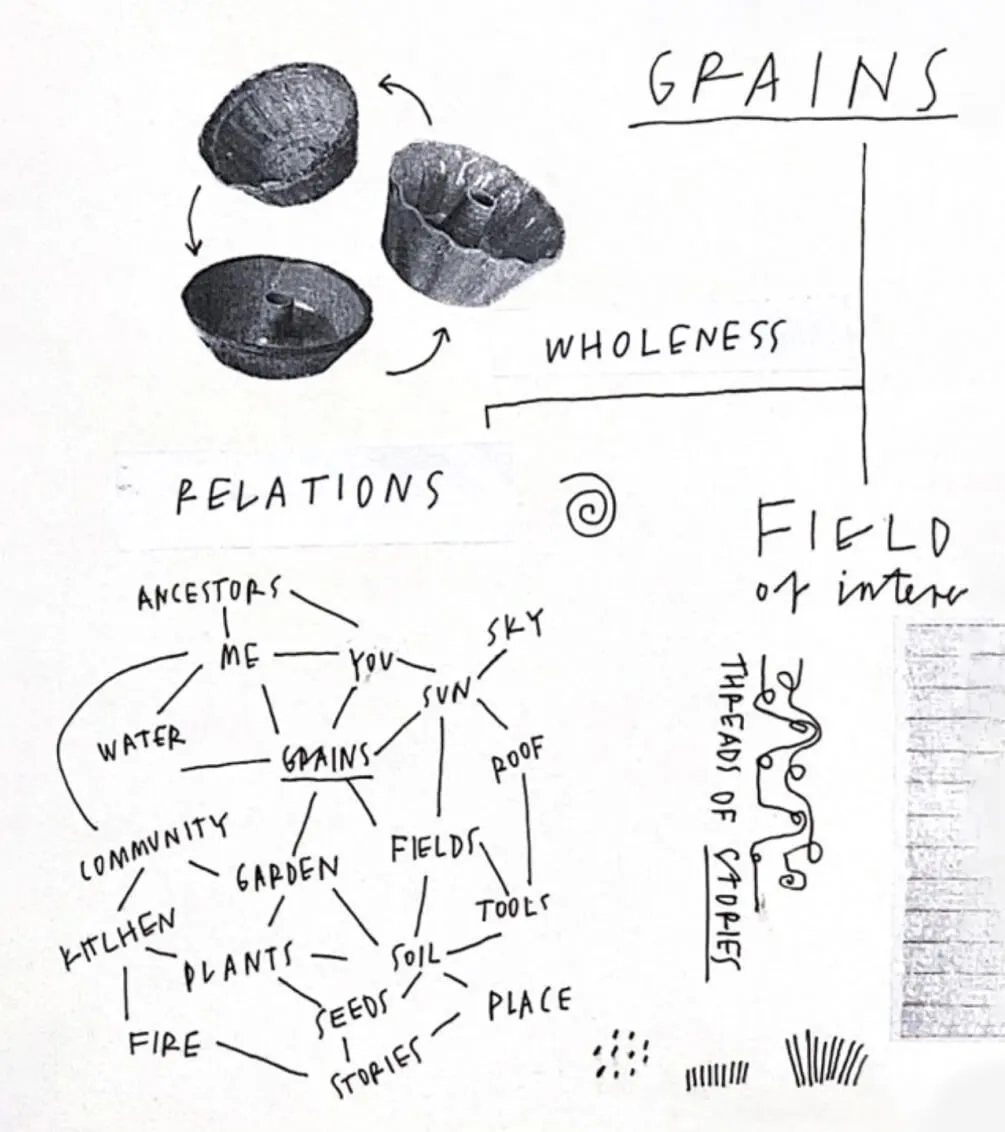 GRAINS
WHOLENESS
RELATIONS
FIELD
of
ANCESTORS
SKY
ME
YOU
SUN
WATER
GRAINS
ROOF
COMMUNITY
FIELDS
GARDEN
TOOLS
KITCHEN
PLANTS
SOIL
SEEDS
PLACE
FIRE
STORIES
THREADS OF STORIES